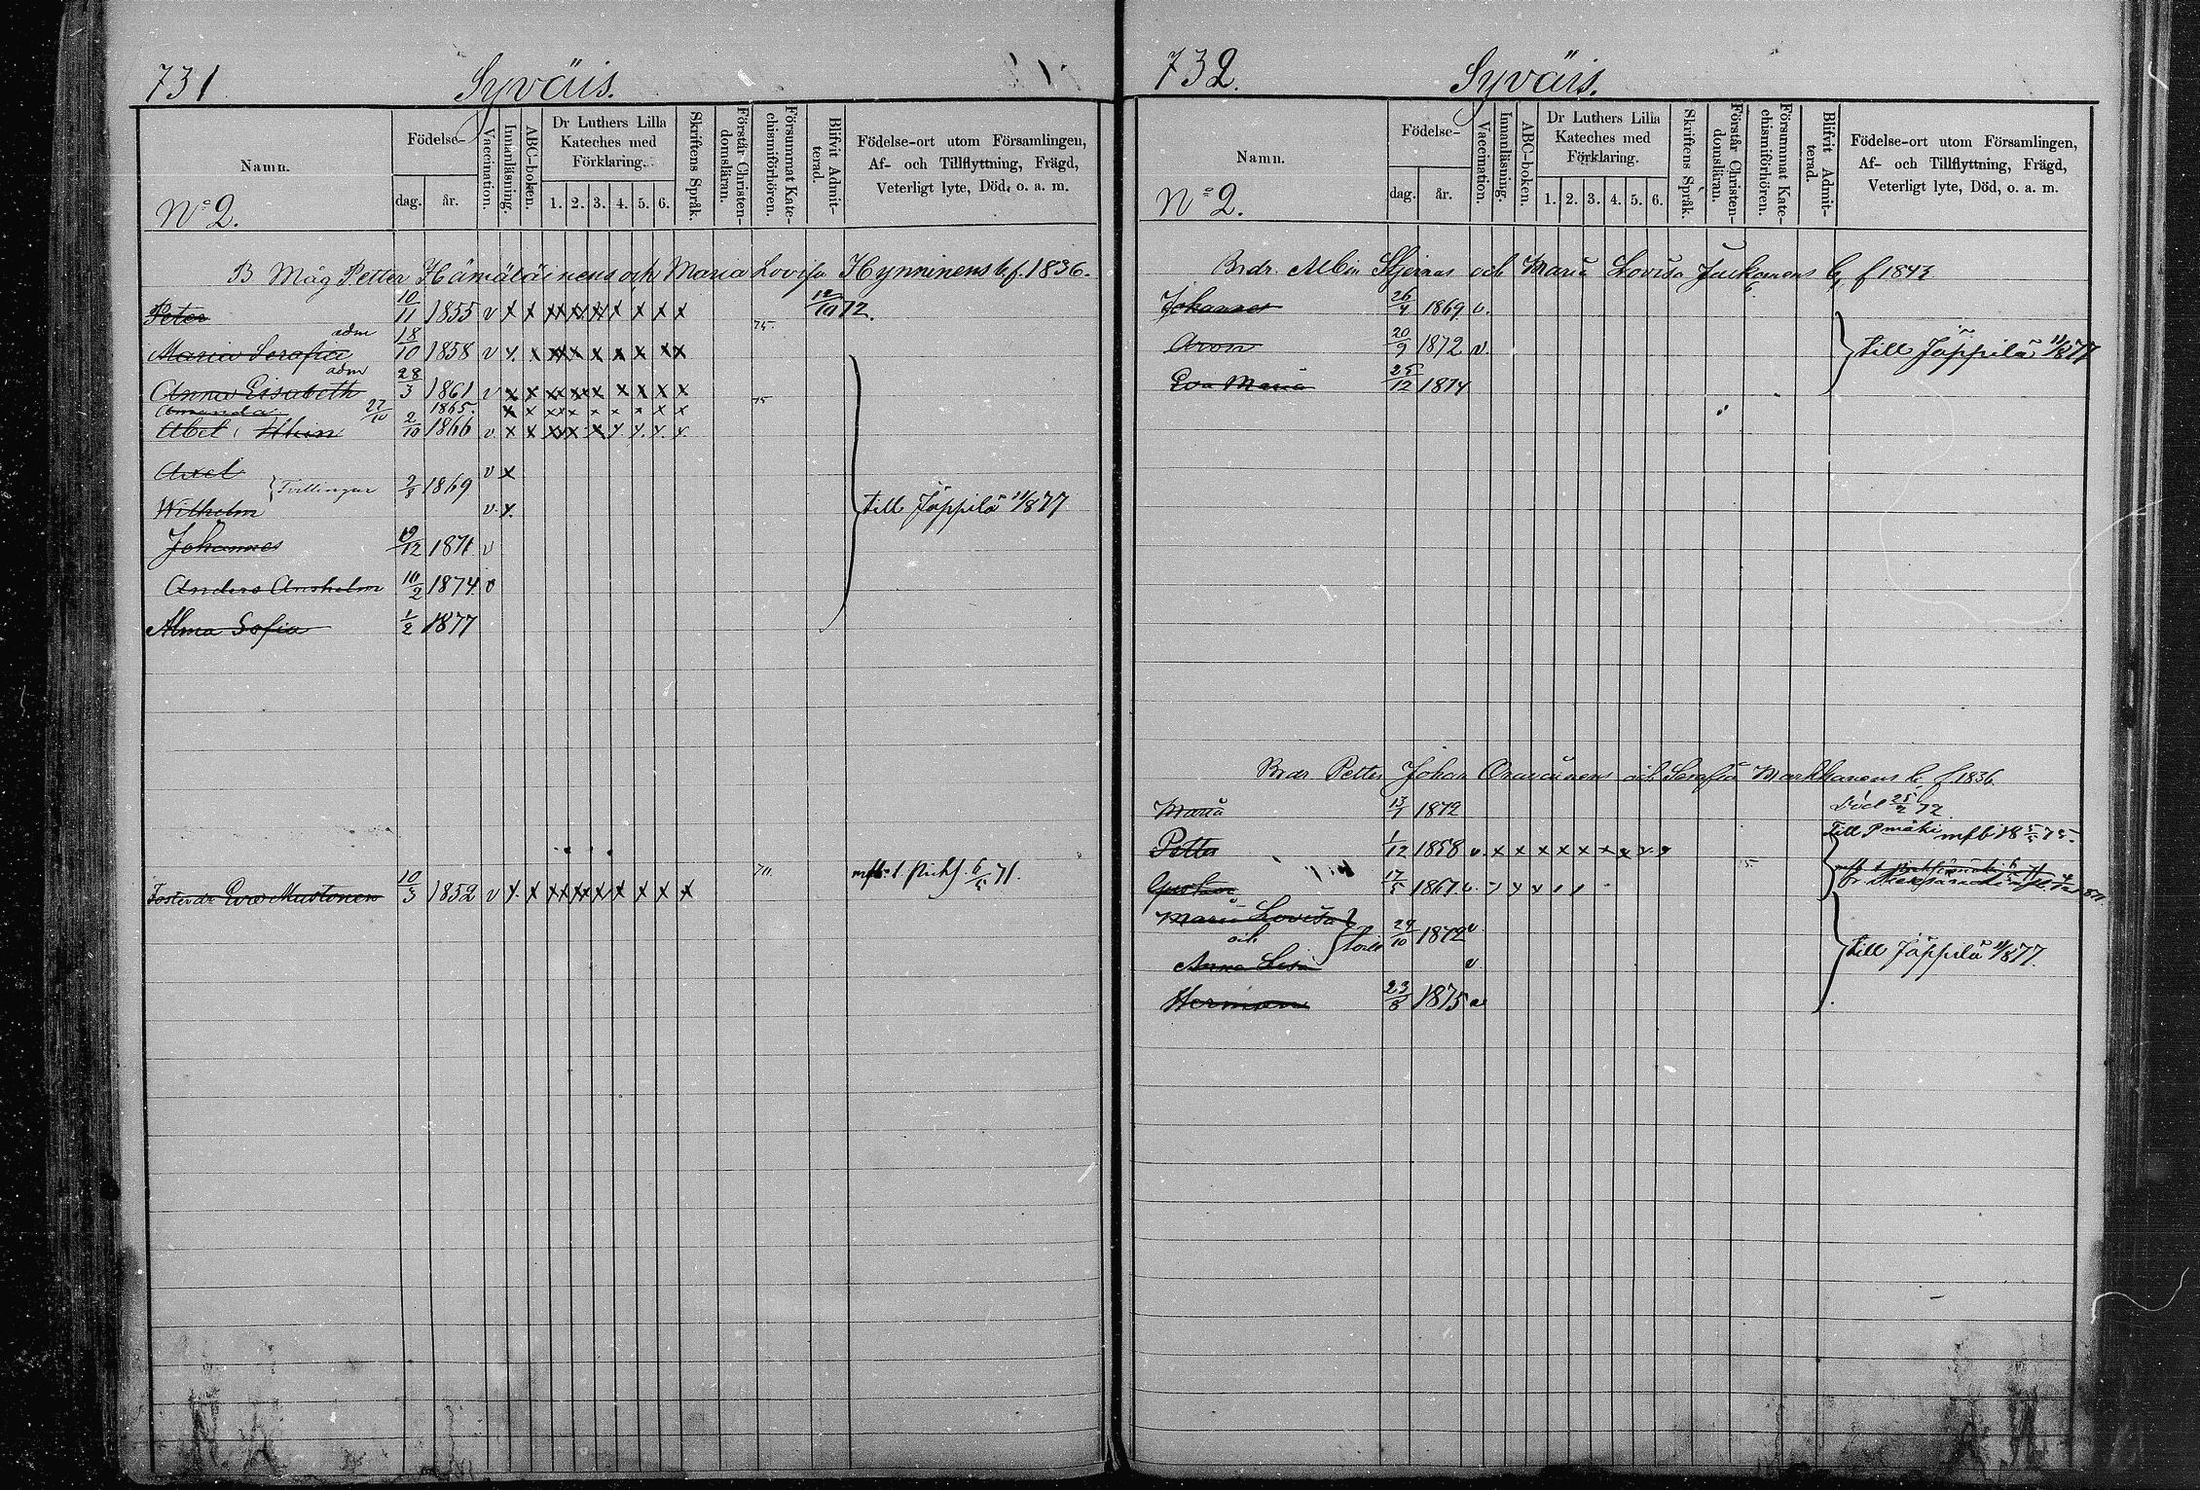 731
Syväis.
Namn.
Födelse-
dag.
år.
Vaccination.
Innanläsning.
ABC-boken.
Dr Luthers Lilla
Kateches med
Förklaring.
1. 2. 3. 4. 5. 6.
Skriftens Språk.
Förstår Christen-
domsläran.
Försummat Kate-
chismiförhören.
Blifvit Admit-
terad.
Födelse-ort utom Församlingen,
Af- och Tillflyttning, Frägd,
Veterligt lyte, Död, o. a. m.
N:o 2.
B Måg Petter Hämäläinens och Maria Lovisa Hynninens b f. 1836.
Peter 10/11 1855 v x x xx xx xx x x x x 12/10 72.
adm
Maria Serafia 18/10 1858 v x x xx x x x x xx 75
adm
Anna Elisabeth 28/3 1861 v x x xx xx x x x x x
Amanda 27/10 1865. x x xx x x x x x x 75
Abel 2/10 1866 v x x xx x x x x x x
Axel v x
Tvillingar 2/3 1869
Wilhelm v x
till Jäppilä 11/8 77
Johannes 12 1871 v
Anders Anshelm 10/2 1874 v
Alma Sofia 1/2 1877
Fosterdr Eva Mustonen 10/3 1852 v x x xx xx x x x x x 70 71.
732.
Syväis.
Namn.
Födelse-
dag.
år.
Vaccination.
Innanläsning.
ABC-boken.
Dr Luthers Lilla
Kateches med
Förklaring.
1. 2. 3. 4. 5. 6.
Skriftens Språk.
Förstår Christen-
domsläran.
Försummat Kate-
chismiförhören.
Blifvit Admit-
terad.
Födelse-ort utom Församlingen,
Af- och Tillflyttning, Frägd,
Veterligt lyte, Död, o. a. m.
N:o 2.
Brdr. Albin och Maria Lovisa b f 1843
Johannes 26/4 1869 v.
Aron 20/9 1872 v.
till Jäppilä 11/8 77
Eva Maria 25/12 1874
Brdr Petter Johan och Serafia Markkanens b. f. 1836
Maria 13/1 1872 Död 25/2 72
Till Pmäki mfb 18 5/5 75.
Petter 1/12 1858 v. x x x x x x x x x
Gustav 17/5 1861 v. x x x 1 1
Maria Lovisa
och
29/10 1872 v
Anna Lisa v
till Jäppilä 11/8 77.
Herman 23/8 1875 v